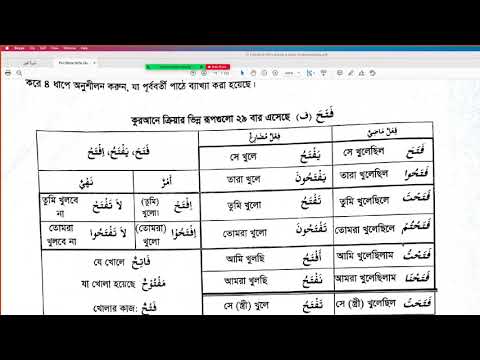 করে ৪ ধাপে অনুশীলন করুন, যা পূর্ববর্তী পাঠে ব্যাখ্যা করা হয়েছে।
কুরআনে ক্রিয়ার ভিন্ন রূপগুলো ২৯ বার এসেছে (ف) فَتَحَ
فَتَحَ، يَفْتَحُ، اِفْتَحْ فِعْلٌ مُضَارِعٌ فِعْلٌ مَاضِيْ
সে খুলে يَفْتَحُ সে খুলেছিল فَتَحَ
نَهْيٌ أَمْرٌ তারা খুলে يَفْتَحُونَ তারা খুলেছিল فَتَحُوا
তুমি খুলবে না لاَ تَفْتَحْ (তুমি) খুলো! اِفْتَحْ তুমি খুলো تَفْتَحُ তুমি খুলেছিলে فَتَحْتَ
তোমরা খুলবে না لاَ تَفْتَحُوا (তোমরা) খুলো! اِفْتَحُوْا তোমরা খুলো تَفْتَحُونَ তোমরা খুলেছিলে فَتَحْتُمْ
যে খোলে فَاتِحٌ আমি খুলছি أَفْتَحُ আমি খুলেছিলাম فَتَحْتُ
যা খোলা হয়েছে مَفْتُوْحٌ আমরা খুলছি نَفْتَحُ আমরা খুলেছিলাম فَتَحْنَا
খোলার কাজ: فَتْحٌ সে (স্ত্রী) খুলে تَفْتَحُ সে (স্ত্রী) খুলেছিল فَتَحَتْ